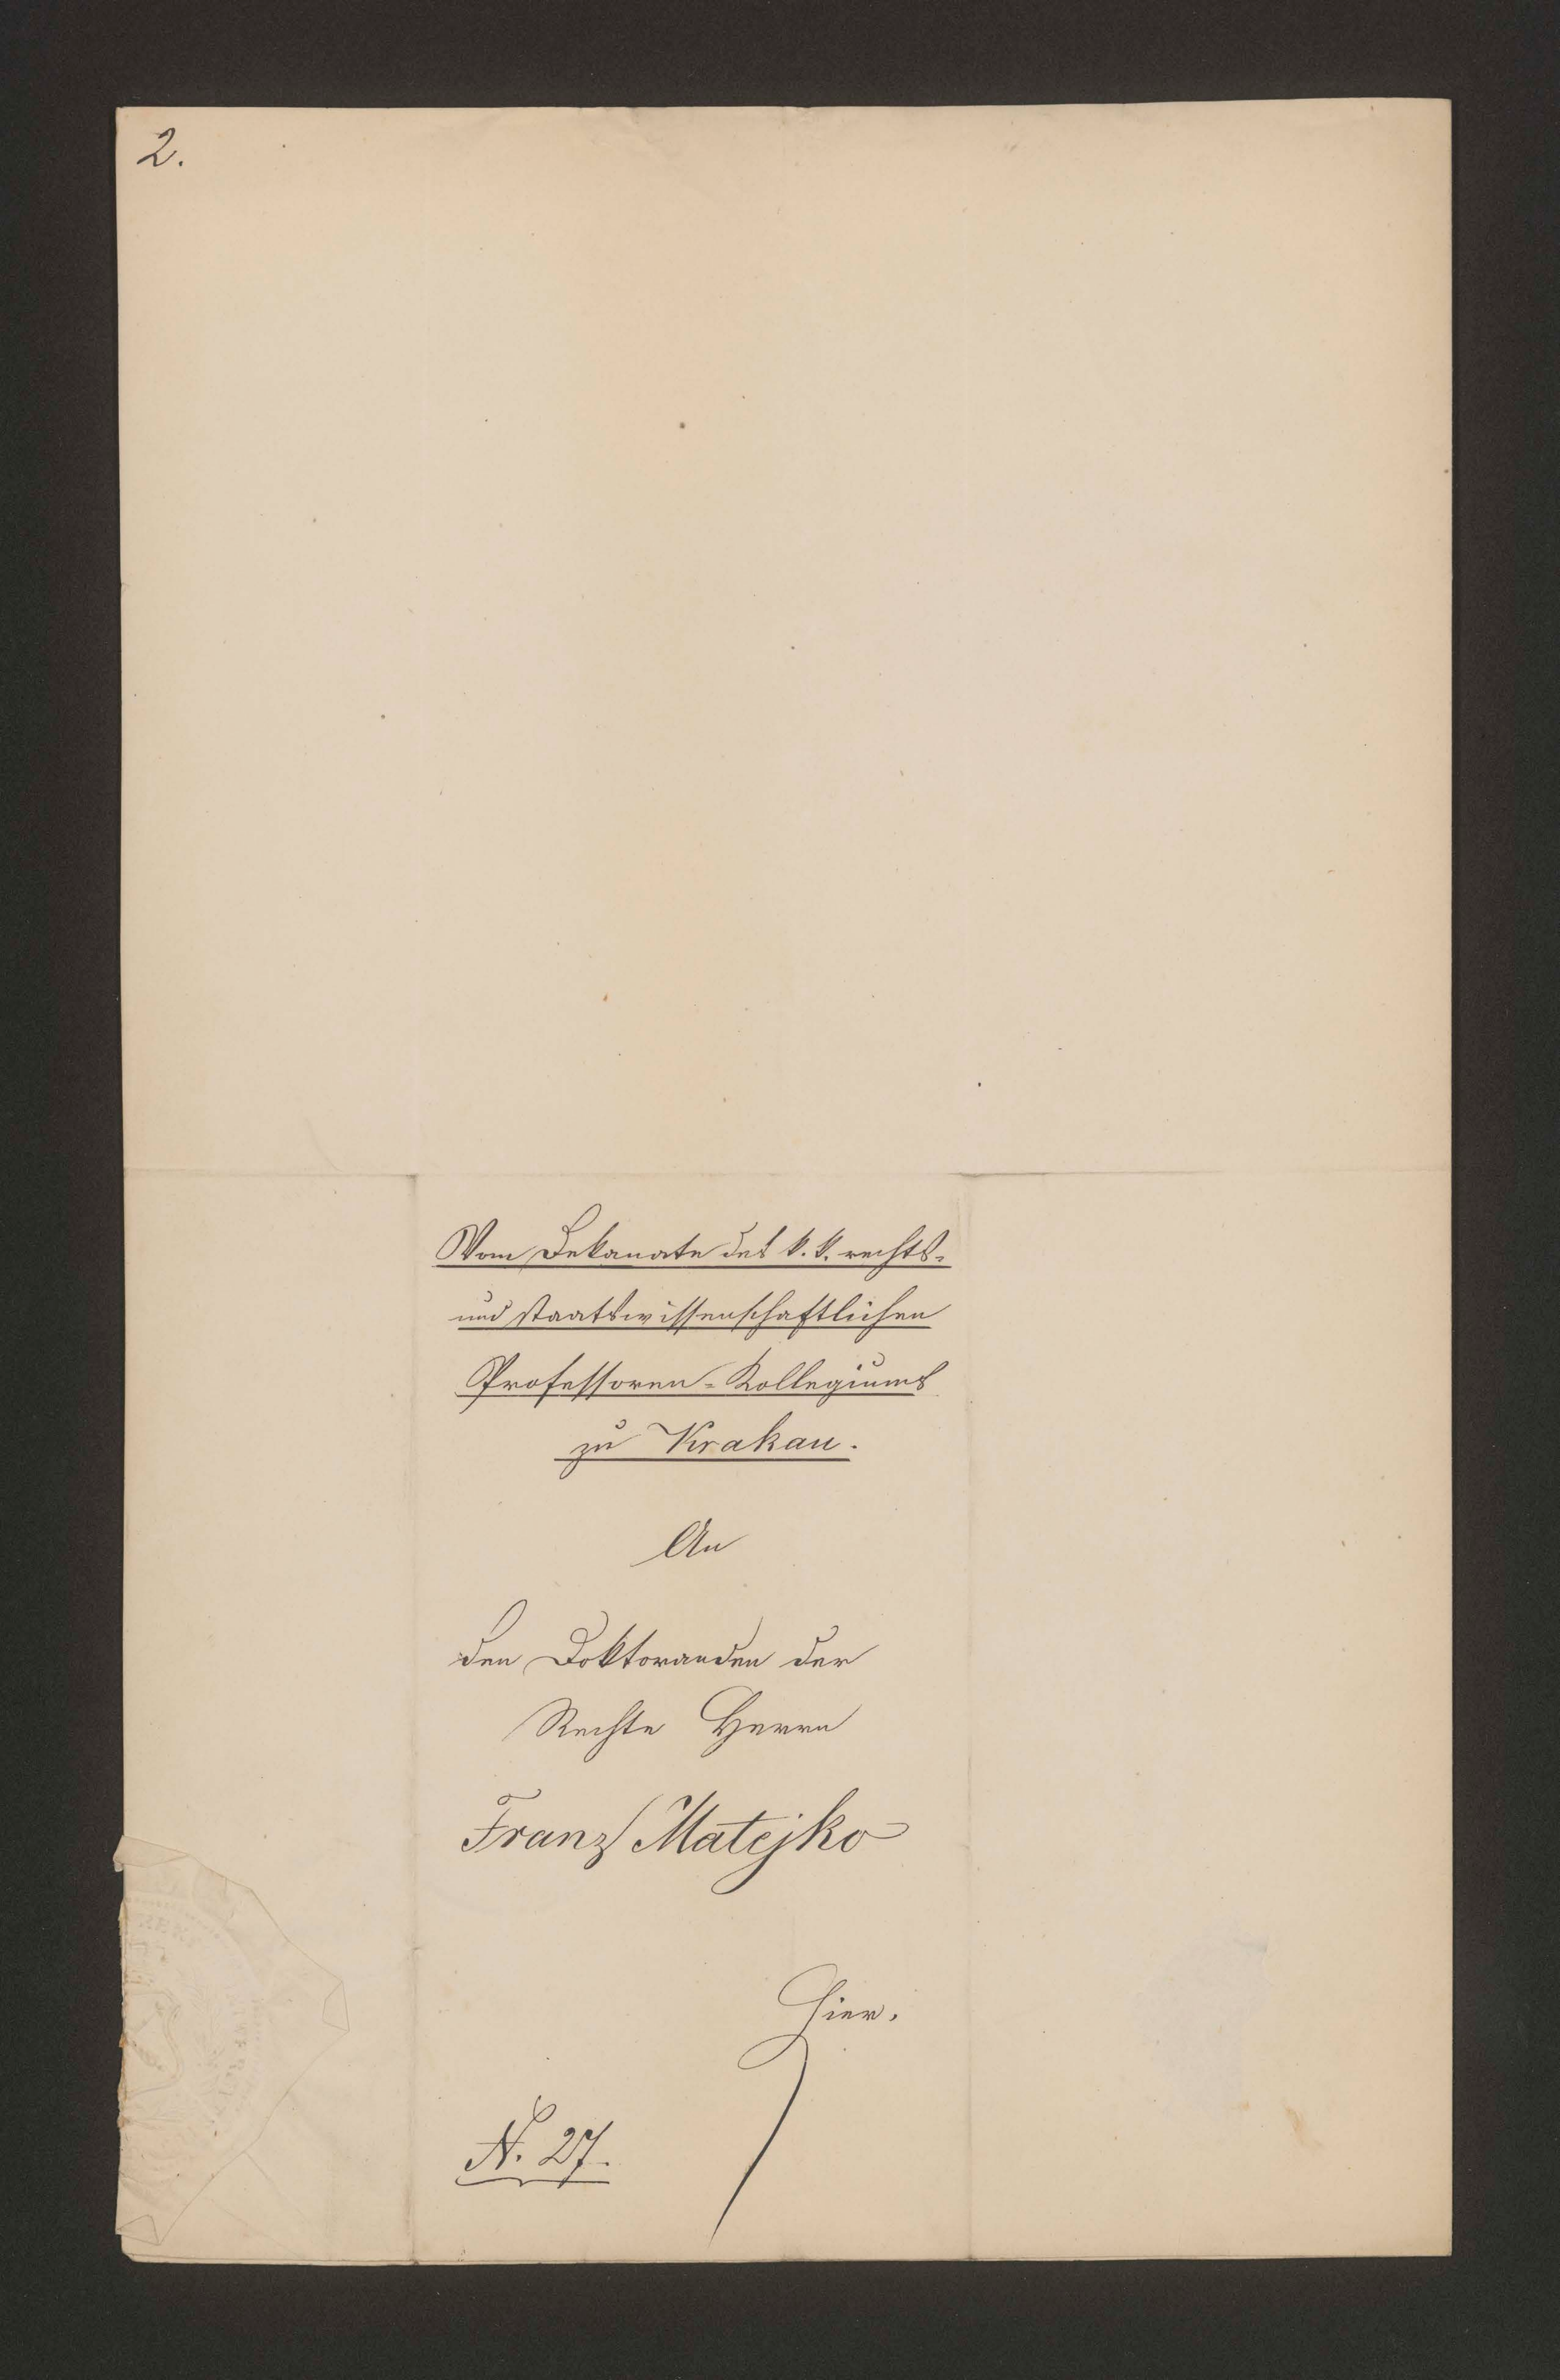 2.
Vom Dekanate des k. k. rechts-
und staatswissenschaftlichen
Professoren-Kollegiums
zu Krakau.
An
den Doktoranden der
Rechte Herrn
Franz Matejko
Hier.
N. 27.